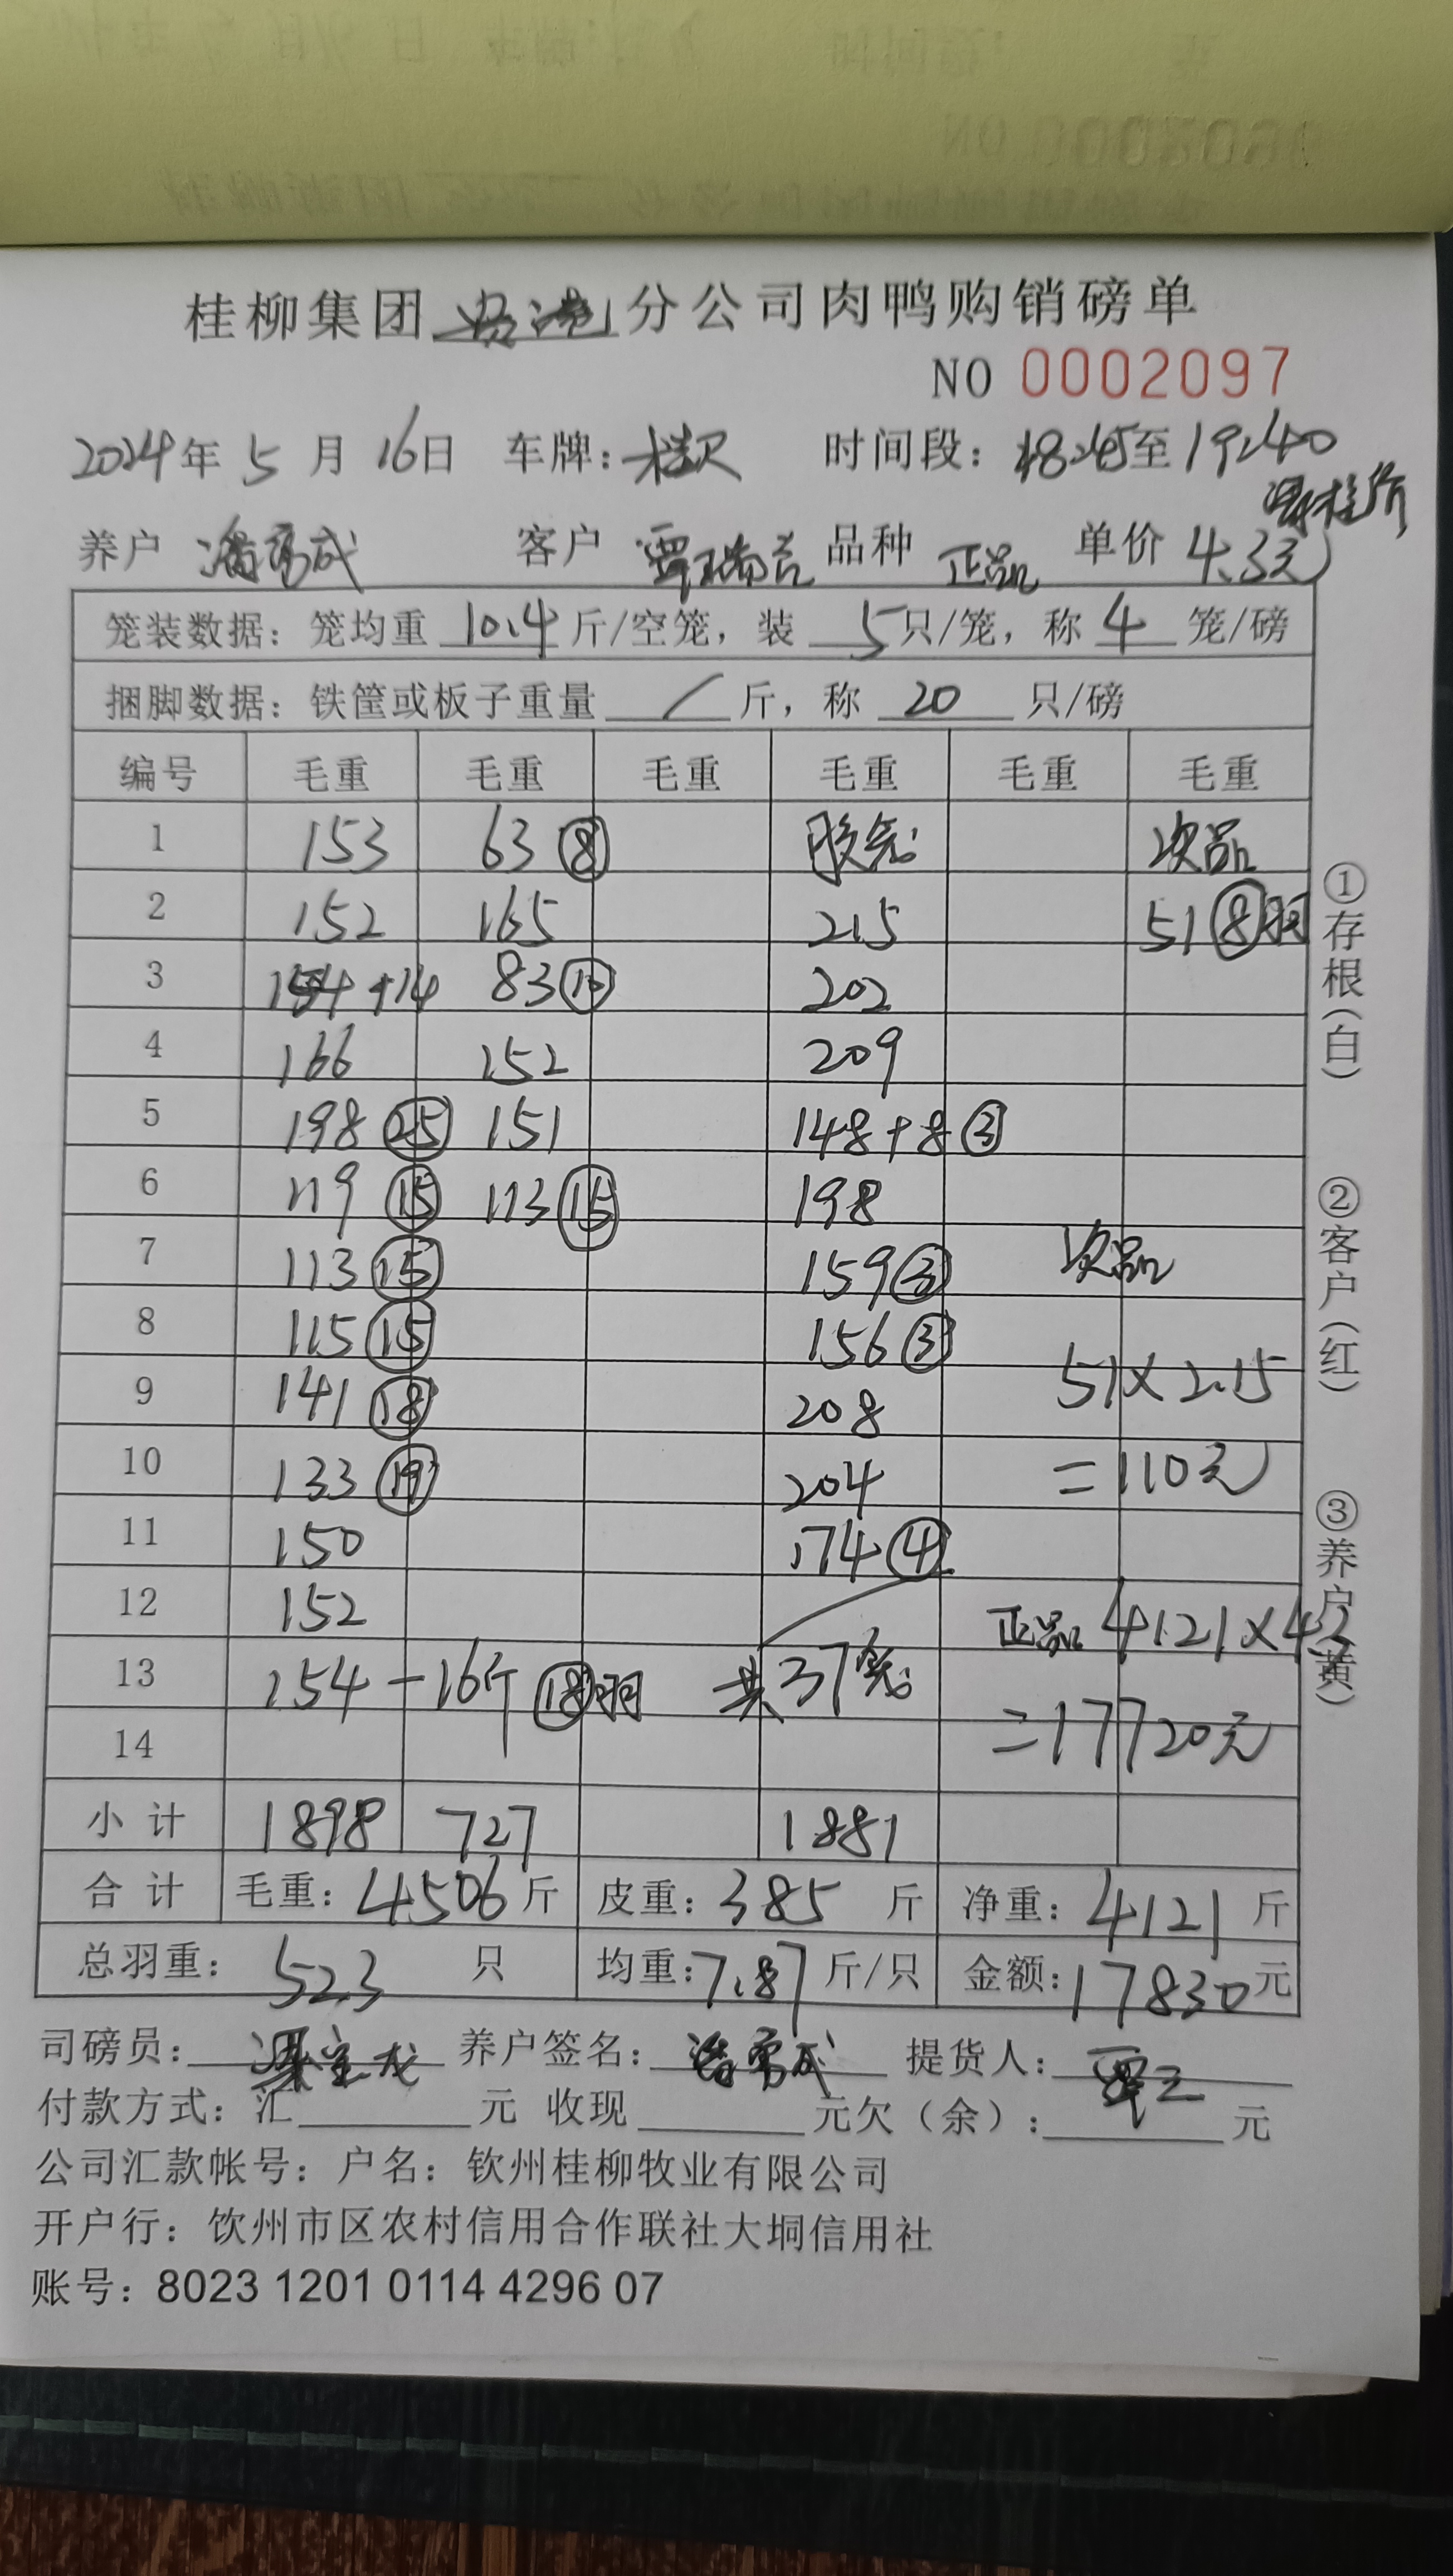 桂柳集团 分公司肉鸭购销磅单
NO 0002097
2024年 5 月 16日 车牌: 时间段: 18:45至19:40
养户 潘勇成 客户 覃瑞吉 品种 正品 单价 4.3元
笼装数据: 笼均重 10.4 斤/空笼, 装 5 只/笼, 称 4 笼/磅
捆脚数据: 铁筐或板子重量 / 斤, 称 20 只/磅
编号 毛重 毛重 毛重 毛重 毛重 毛重
1 153 63 ⑧ 次品
2 152 165 215 51 ⑧羽
3 154+14 83 ⑩ 202
4 166 152 209
5 198 ㉕ 151 148+8 ③
6 119 ⑮ 113 ⑮ 198
7 113 ⑮ 159 ③ 次品
8 115 ⑮ 156 ③
9 141 ⑱ 208 51×2.15
10 133 ⑲ 204 =110元
11 150 174 ④
12 152 正品 4121×4.3
13 154-16斤 ⑱羽 共37笼
14 =17720元
小 计 1898 727 1881
合 计 毛重: 4506 斤 皮重: 385 斤 净重: 4121 斤
总羽重: 523 只 均重: 7.87 斤/只 金额: 17830 元
司磅员: 养户签名: 潘勇成 提货人: 覃三
付款方式: 汇 元 收现 元欠(余): 元
公司汇款帐号: 户名: 钦州桂柳牧业有限公司
开户行: 饮州市区农村信用合作联社大垌信用社
账号: 8023 1201 0114 4296 07
①存根(白)
②客户(红)
③养户(黄)